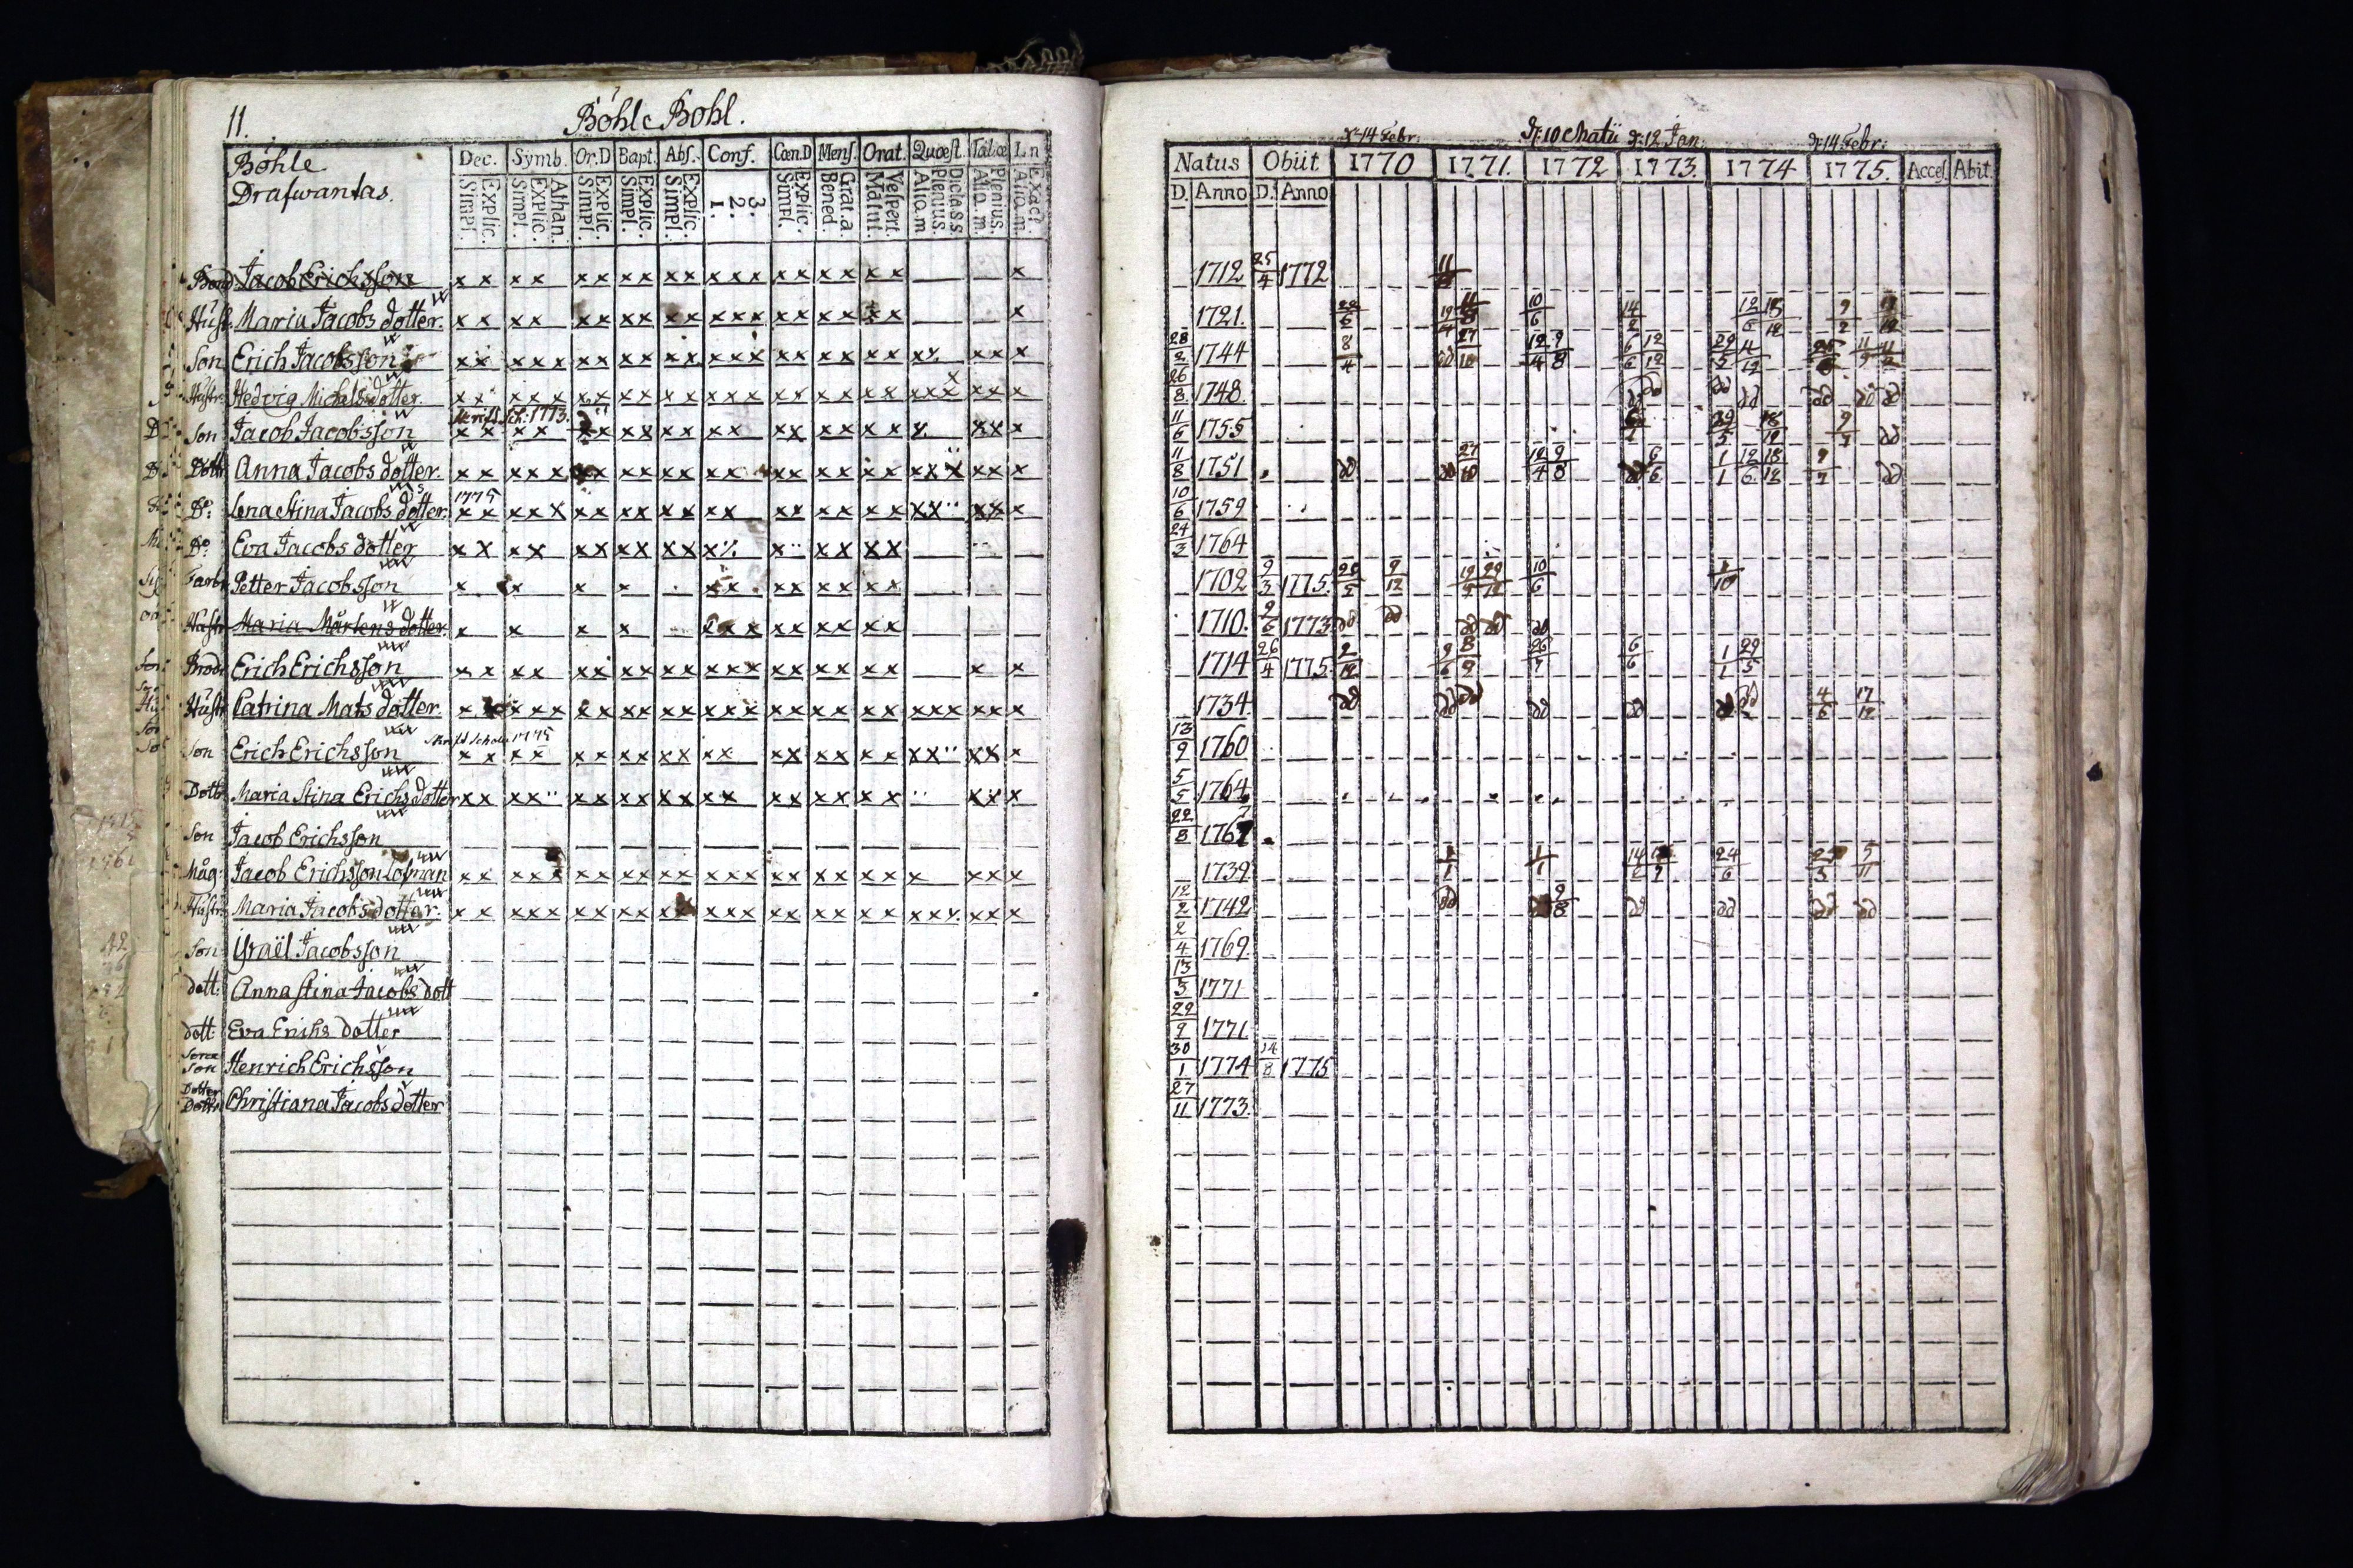 11.
Böhle Bohl.
Böhle
Drafwantas.
Dec. Symb. Or.D Bapt. Abs. Conf. Cœn.D Mens. Orat. Quæst. Taūlæ L.n
Simpl. Explic. Simpl. Explic. Athan. Simpl. Explic. Simpl. Explic. Simpl. Explic. 1. 2. 3. Simpl. Explic. Bened. Grat.a. Matut. Vespert. Alio.m Plenius. Dict.a.s.s. Alio.m. Plenius. Alio.m. Exact.
Bond Jacob Erichsson x x x x x x x x x x x x x x x x x x x x
Hust. Maria Jacobs dotter. x x x x x x x x x x x x x x x x x x x x
Son Erich Jacobsson x x x x x x x x x x x x x x x x x x x x x x x x x
Hustr Hedvig Michelsdotter. x x x x x x x x x x x x x x x x x x x x x x x x x x x x
1773.
Son Jacob Jacobsson x x x x x x x x x x x x x x x x x x x x x x x
Dott Anna Jacobs dotter. x x x x x x x x x x x x x x x x x x x x x x x x x
1775
D:o Lena Stina Jacobs dotter. x x x x x x x x x x x x x x x x x x x x x x x x
D:o Eva Jacobs dotter x x x x x x x x x x x x x x x x x
Petter Jacobsson x x x x x x x x x x x
Hustr Maria Mårtens dotter. x x x x x x x x x x x x x
Brod. Erich Erichsson x x x x x x x x x x x x x x x x x x x x x
Hustr Catrina Mats dotter. x x x x x x x x x x x x x x x x x x x x x x x x x
1775
Son Erich Erichsson x x x x x x x x x x x x x x x x x x x x x x x
Dott Maria Stina Erichs dotter x x x x x x x x x x x x x x x x x x x x x
Son Jacob Erichsson
Måg: Jacob Erichsson Lofman x x x x x x x x x x x x x x x x x x x x x x x x
Hustr: Maria Jacobs dotter. x x x x x x x x x x x x x x x x x x x x x x x x x x
Son Israël Jacobsson
dott: Anna Stina Jacobs dott
dott: Eva Erichs dotter
Son Henrich Erichsson
Dotter
Dottr Christiana Jacobs dotter
d. 14 Febr. d. 10 d. 12 Jan. d. 14 Febr:
Natus Obiit. 1770 1771. 1772 1773. 1774 1775. Acces. Abit.
D. Anno D. Anno
1712 25/4 1772
1721. 10/6 14/2 9/2
28/2 1744 8/4 27/10 12/4 9/8 6/6 12/12
26/8 1748. dd dd dd dd dd dd
11/6 1755 29/5 18/12 9/7 dd
11/8 1751 dd 27/10 12/4 9/8 6/6 1/1 12/6 18/12 9/7 dd
10/6 1759
24/3 1764
1702 9/3 1775. 9/12 10/6 1/10
1710. 9/6 1773 dd dd dd dd dd
1714 26/4 1775. 2/12 9/6 8/9 26/7 6/6 1/1 29/5
1734. dd dd dd dd dd dd 4/6 17/12
13/9 1760
5/5 1764
22/8 1767
1739. 1/1 1/1 24/6 25/3 5/11
12/2 1742 dd 9/8 dd dd dd dd
2/4 1769.
13/3 1771
29/9 1771
30/1 1774 14/8 1775
27/11 1773.